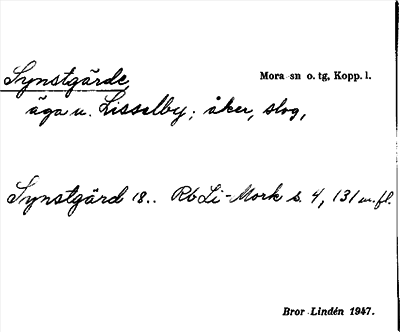 Synstgärde, Mora sn o. tg, Kopp. l.
äga u. Lisselby; åker, slog,
Synstgärd 18.. Rb Li-Mork s. 4, 131 m. fl.
Bror Lindén 1947.